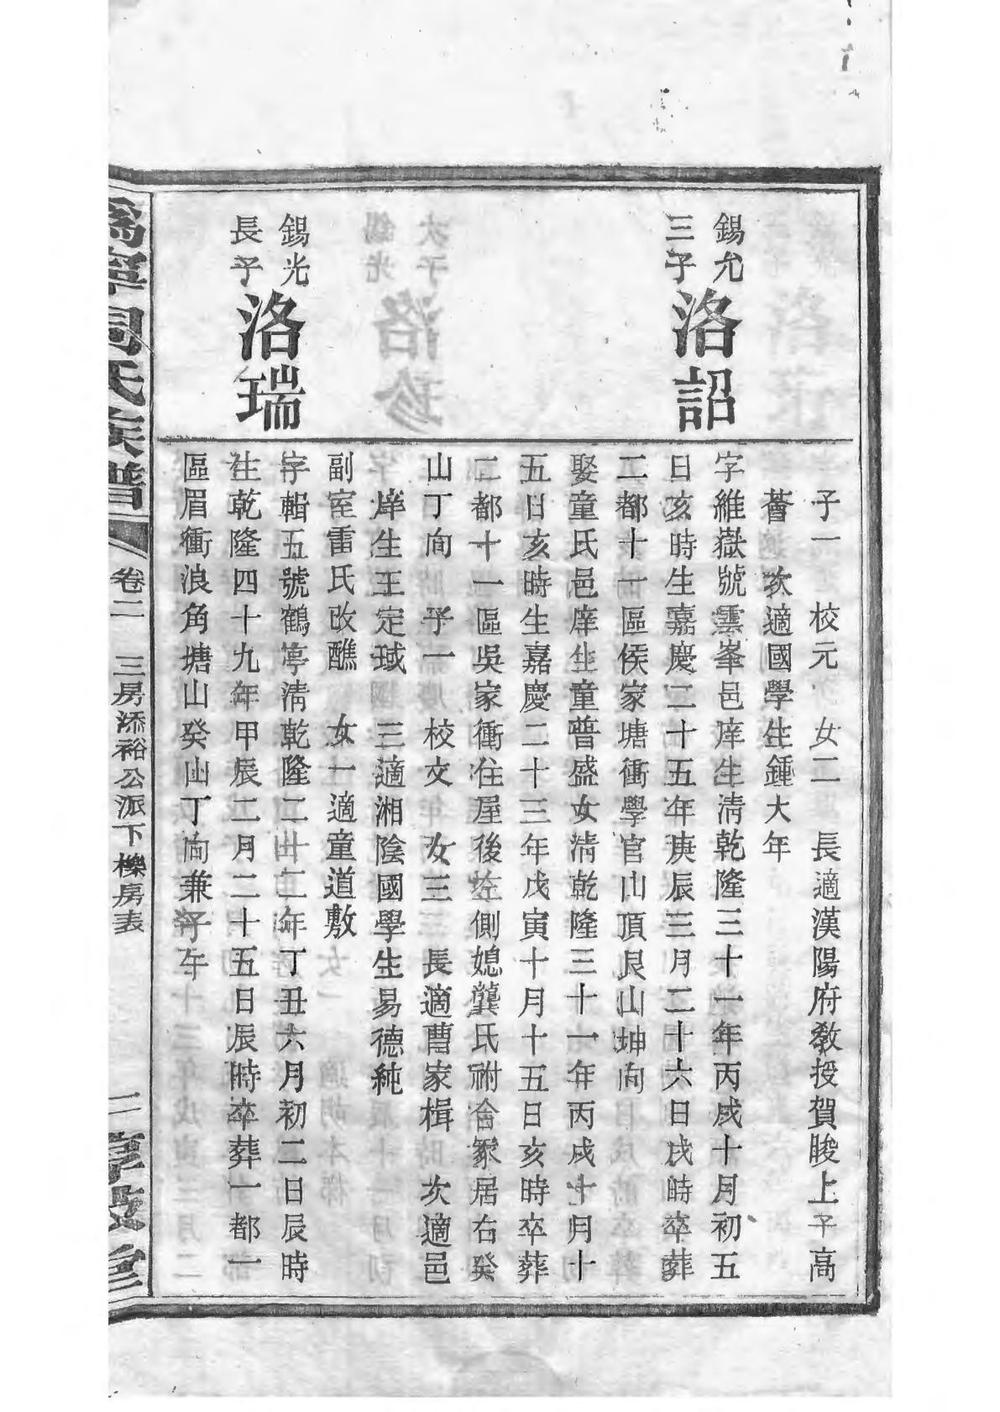 錫允
三子
洛詔
錫光
長子
洛瑞
子一 校元 女二 長適漢陽府教授賀睃上子高
薈 次適國學生鍾大年
字維嶽號雲峯邑庠生清乾隆三十一年丙戌十月初五
日亥時生嘉慶二十五年庚辰三月二十六日戌時卒葬
二都十一區侯家塘衝學官山頂艮山坤向
娶童氏邑庠生童普盛女清乾隆三十一年丙戌七月十
五日亥時生嘉慶二十三年戊寅十月十五日亥時卒葬
二都十一區吳家衝住屋後左側媳龔氏祔合冢居右癸
山丁向 子一 校文 女三 長適曹家楫 次適邑
庠生王定珹 三適湘陰國學生易德純
副室雷氏改醮 女一適童道敷
字輯五號鶴亭清乾隆二十二年丁丑六月初二日辰時
生乾隆四十九年甲辰二月二十五日辰時卒葬一都一
區眉衝浪角塘山癸山丁向兼子午
甯周氏族譜
卷二 三房添裕公派下櫟房表
二